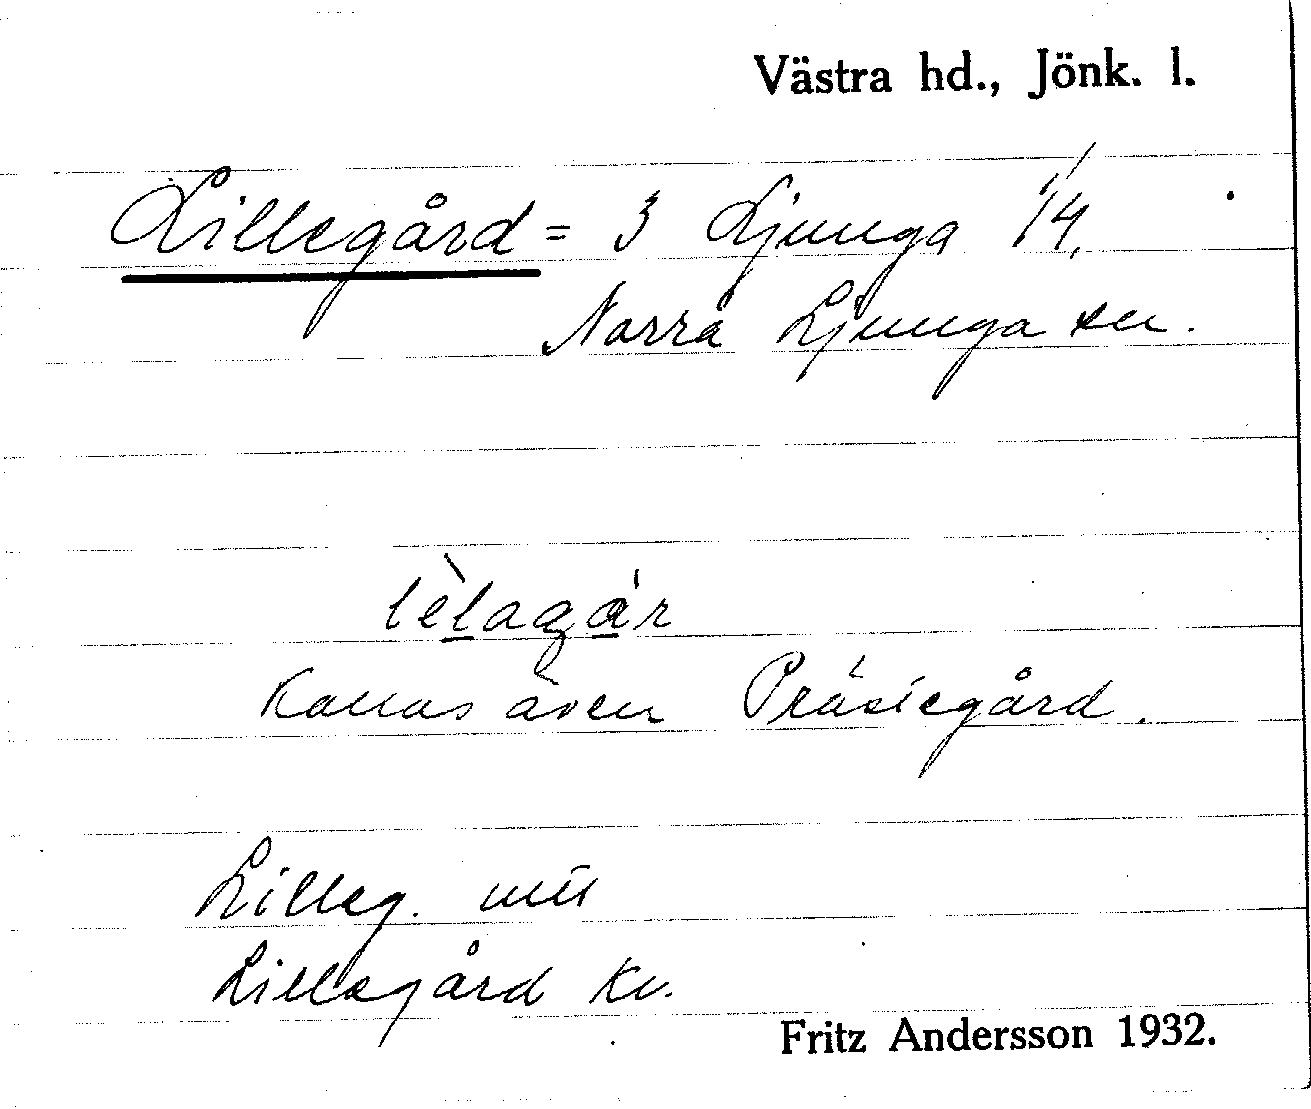 Västra hd., Jönk. l.
Lillegård = 3 Ljunga 1/4.
Norra Ljunga sn.
lèlagár
Kallas även Prästegård.
Lilleg.
Lillegård
Fritz Andersson 1932.